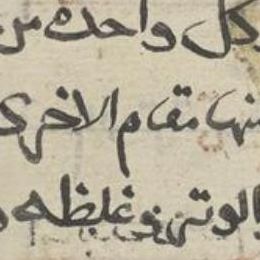 وكل واحدة من
منها مقام الاخرى
الوتر وغلظه